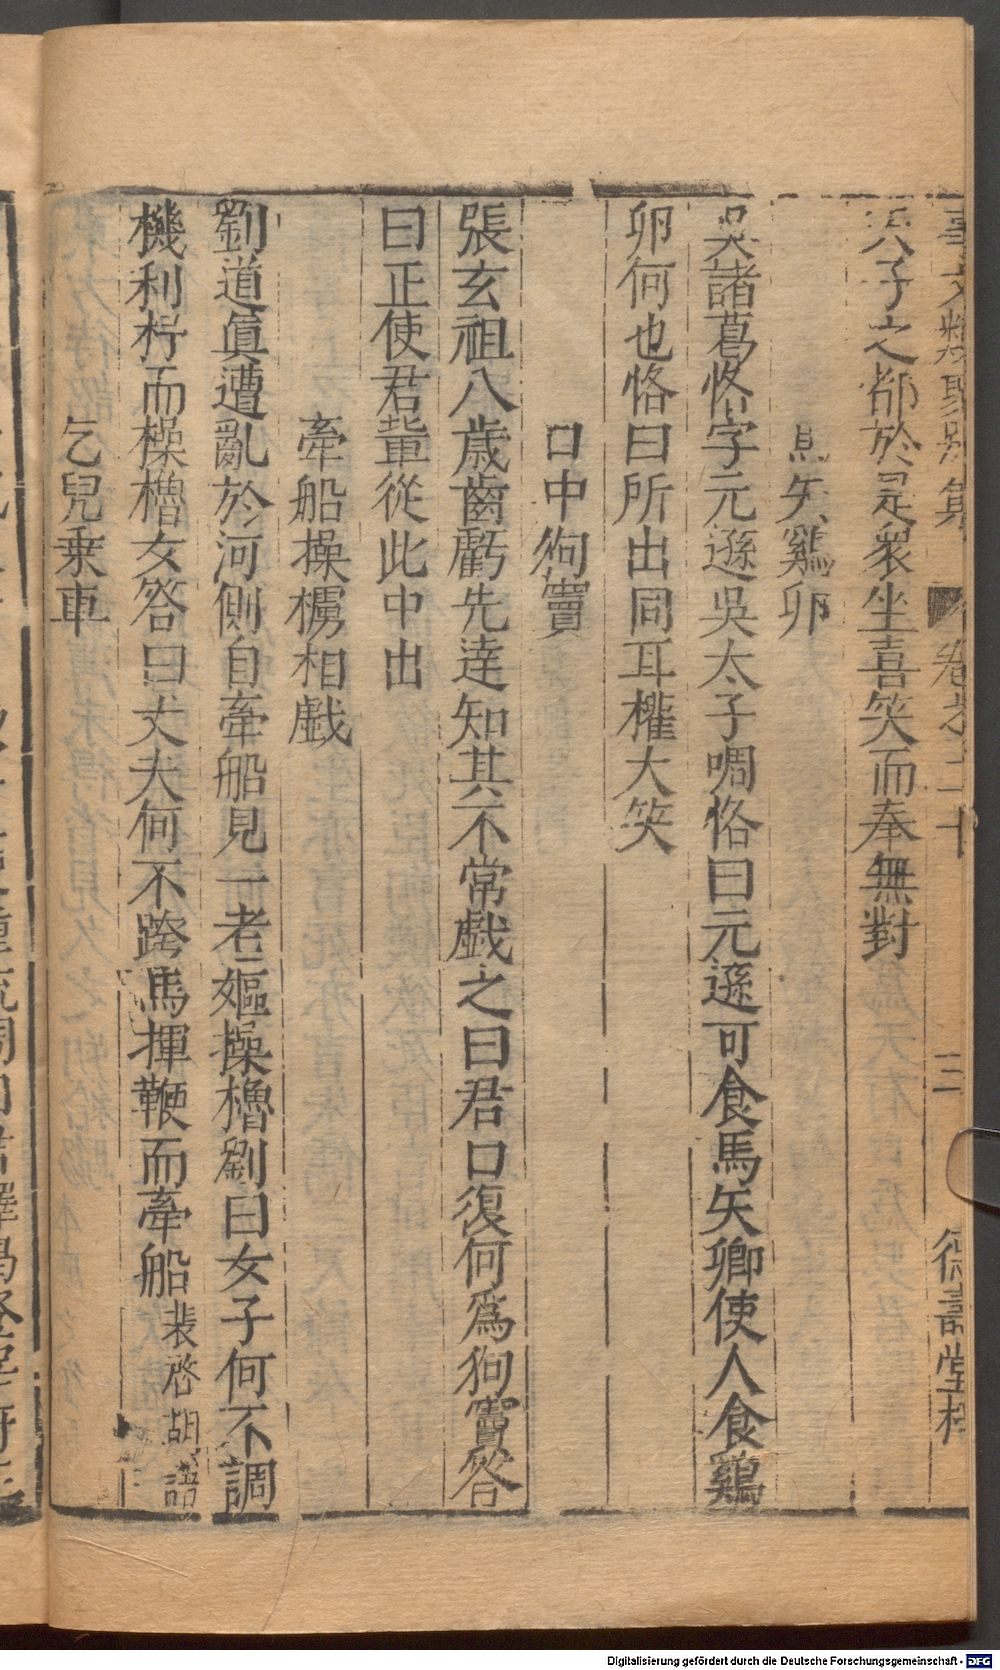 事文類聚別集 卷之二十 三 德壽堂梓
天子之都於是衆坐喜笑而奉無對
馬矢鷄卵
吳諸葛恪字元遜吳太子啁恪曰元遜可食馬矢卿使人食鷄
卵何也恪曰所出同耳權大笑
口中狗竇
張玄祖八歲齒虧先達知其不常戲之曰君口復何爲狗竇答
曰正使君輩從此中出
牽船操櫓相戲
劉道眞遭亂於河側自牽船見一老嫗操櫓劉曰女子何不調
機利杼而操櫓女答曰丈夫何不跨馬揮鞭而牽船裴啓
語
乞兒乗車
Digitalisierung gefördert durch die Deutsche Forschungsgemeinschaft - DFG